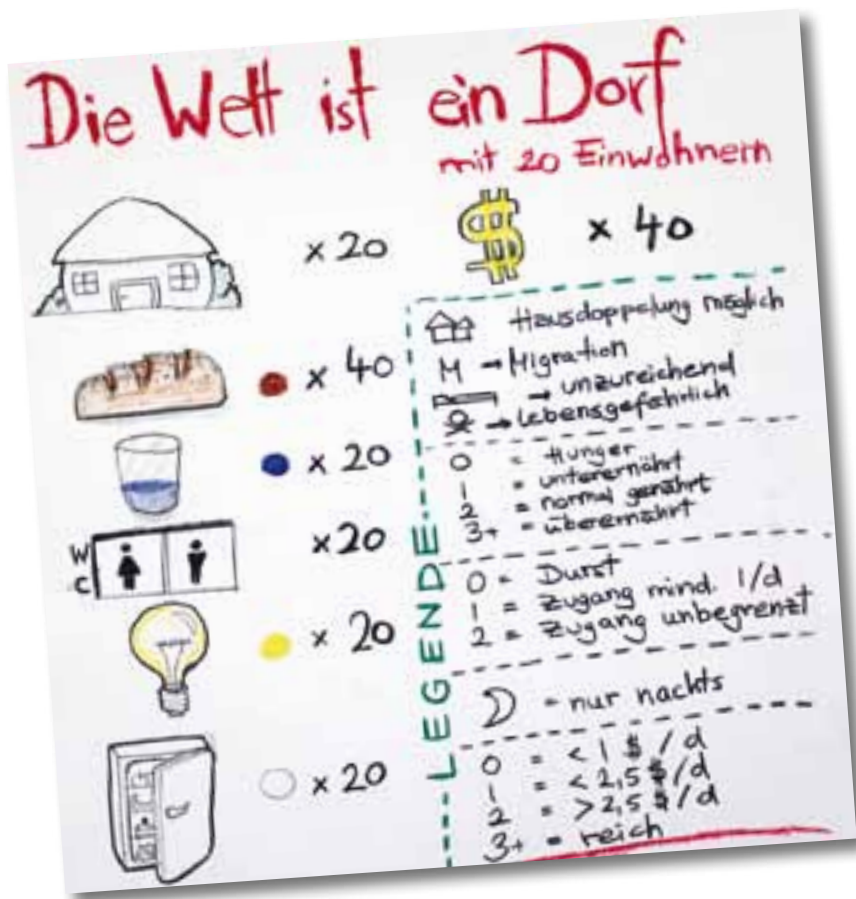 Die Welt ist ein Dorf
mit 20 Einwohnern
x 20
$ x 40
x 40
x 20
WC
x 20
x 20
x 20
LEGENDE
Hausdoppelung möglich
M → Migration
→ unzureichend
→ Lebensgefährlich
0 = Hunger
1 = unterernährt
2 = normal genährt
3+ = überernährt
0 = Durst
1 = Zugang mind. 1/d
2 = Zugang unbegrenzt
= nur nachts
0 = < 1 $ / d
1 = < 2,5 $ / d
2 = > 2,5 $ / d
3+ = reich